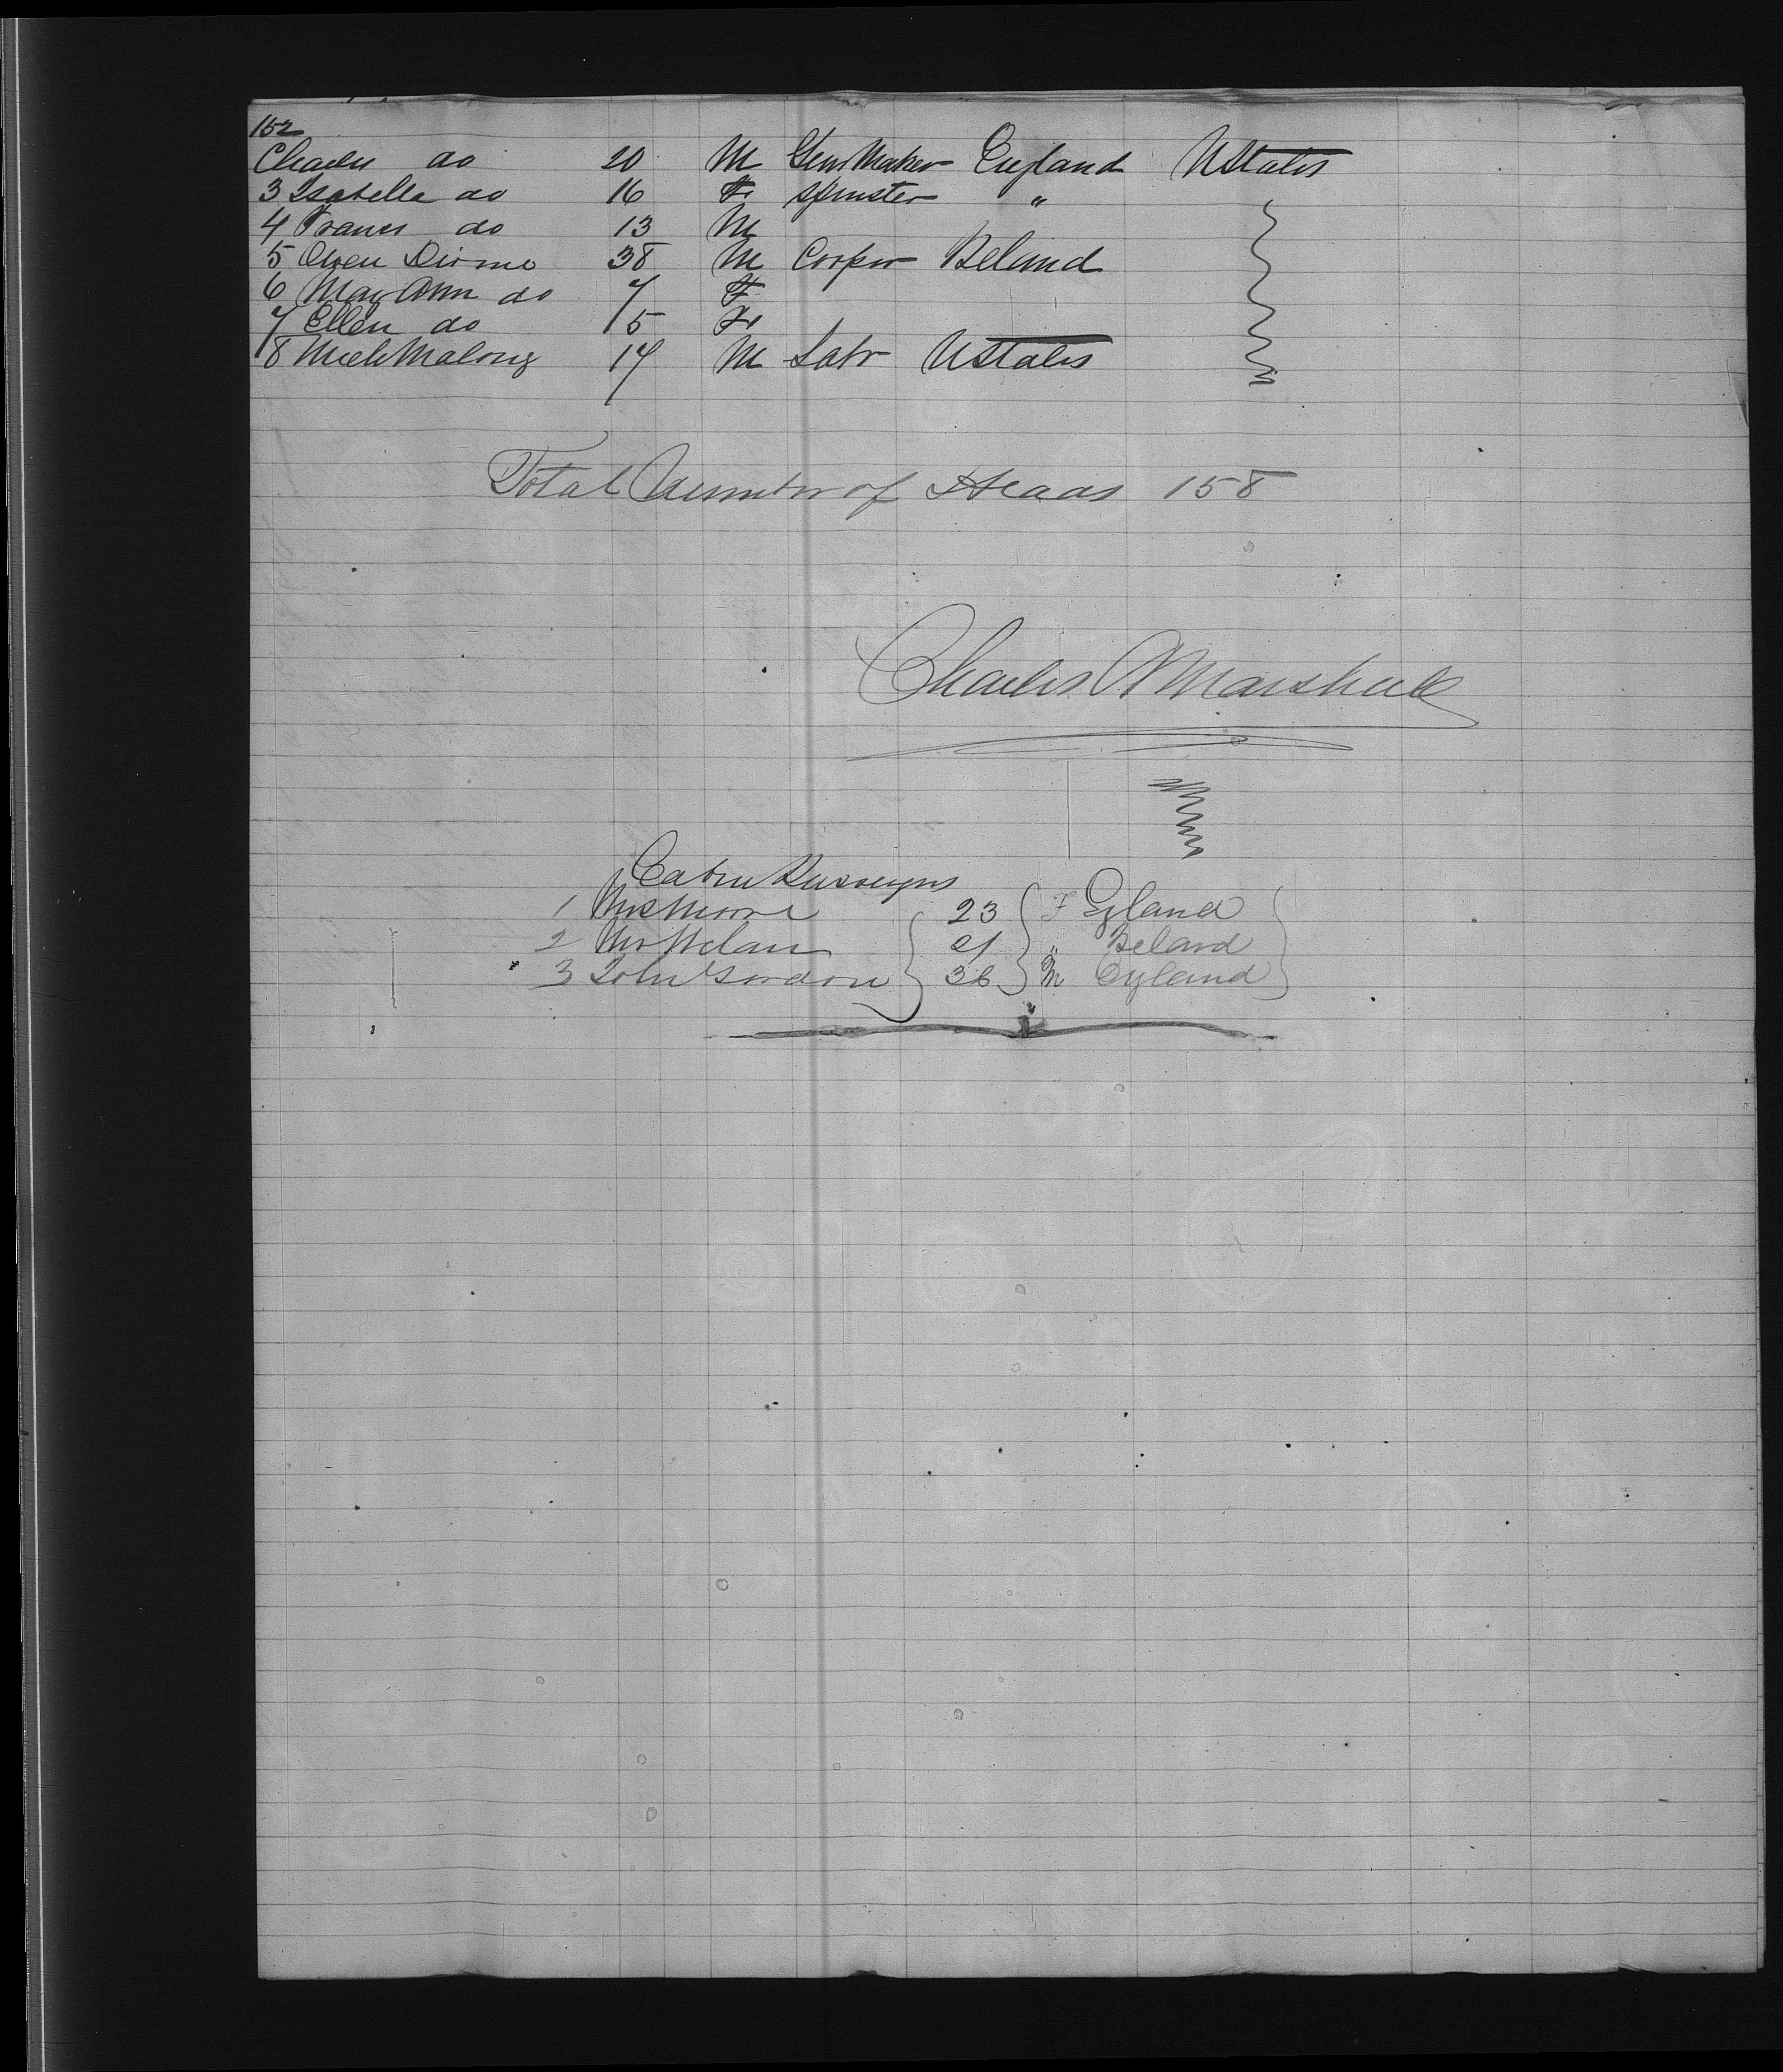 152
Charles do 20 M Gun Maker England UStates
3 Isabella do 16 F Spinster "
4 Francis do 13 M
5 Owen 38 M Cooper Ireland
6 Mary Ann do 7 F
7 Ellen do 5 F
8 Mich Malony 17 M Labr UStates
Total Number of Heads 158
Charles A Marshall
Cabin Passengers
1 Mrs Moore 23 F England
2 Mrs Ireland
3 John Gordon 36 M England